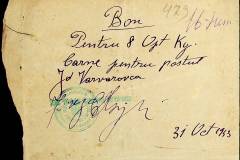 Bon
429
16 
Pentru 8 Opt Kg.
Carne pentru postul
Jd Varvarovca
31 Oct 1943